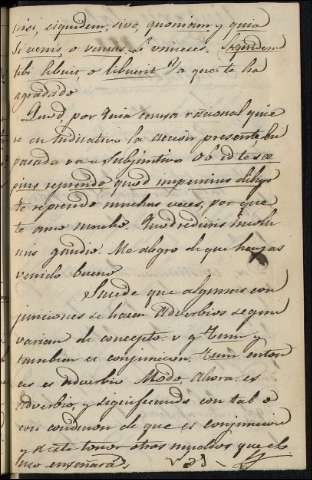 nisi, siquidem, sive, quoniam y quia
Si venis o venias, Si vinieses. Siquidem
tibi libuit, o libuerit Ya que te ha
agradado
Quod, por Quia causa racional quie
re en Indicativo la accion presente ó
pasada va a Subjuntivo Ob id te sæ
pius reprendo quod impensius diligo
te reprendo muchas veces, por que
te amo mucho. Quod redieris incolu
mis gaudeo Me alegro de que hayas
venido bueno
Sucede que algunas con
junciones se hacen Adverbios segun
varian de concepto. v. g. Tum y
tambien es conjuncion. Tum enton
ces es adverbio Modo, Ahora es
adverbio, y significando con tal ó
con condicion de que es conjuncion
y a este tenor otras muchas que el
uso enseñará